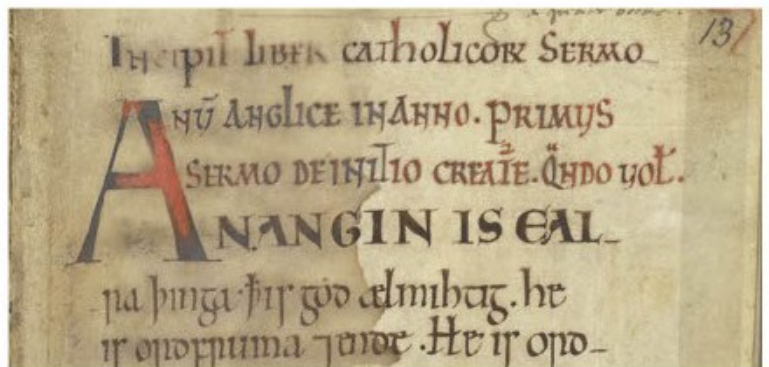 Incipit liber catholicoꝝ Sermo
nū Anglice in anno. primus
sermo de initio creatꝛe. Qn̄do uol̄.
AN ANGIN IS EAL-
ra þinga ꝥ is god ælmihtig. he
is ordfruma ⁊ ende. He is ord-
13